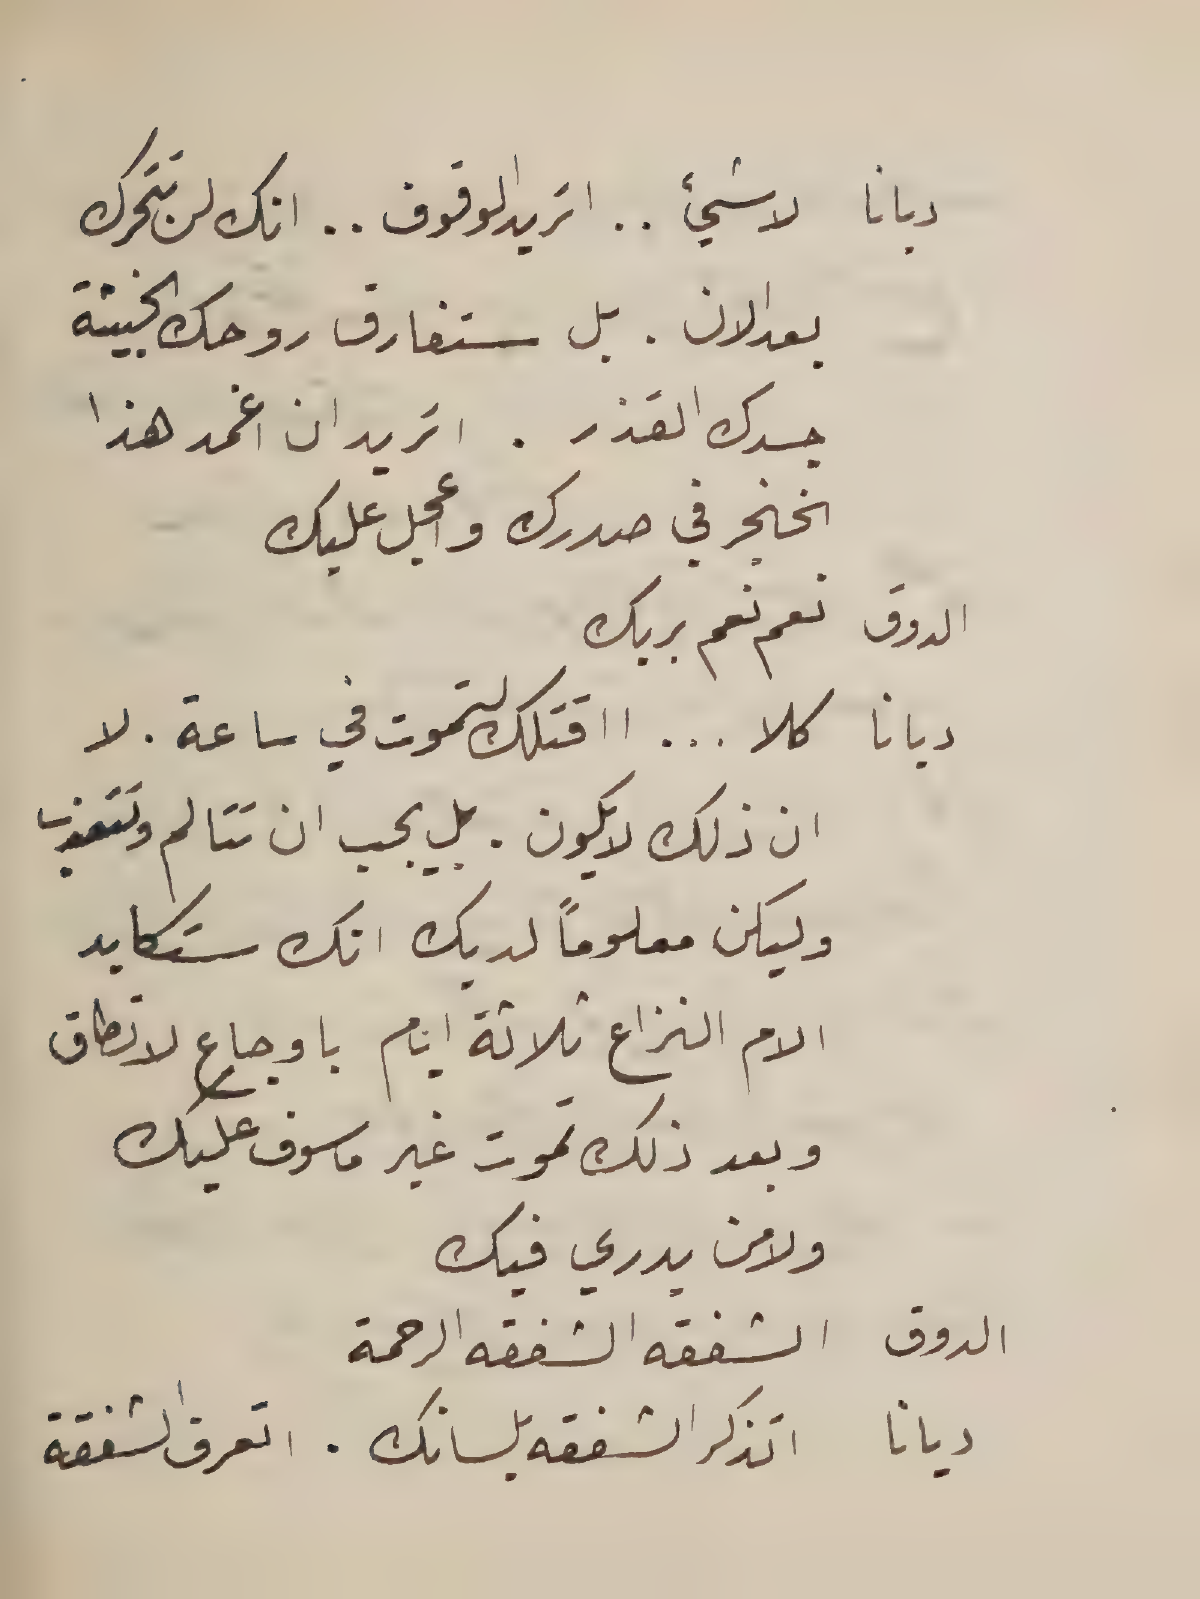 ديانا لا شيئ .. اتريد الوقوف .. انك لن تتحرك
بعد الان . بل ستفارق روحك الخبيثة
جسدك القذر . اتريد ان اغمد هذا
الخنجر في صدرك واعجل عليك
الدوق نعم نعم بربك
ديانا كلا ... ااقتلك لتموت في ساعة . لا
ان ذلك لا يكون . بل يجب ان تتالم وتتعذب
وليكن معلوماً لديك انك ستكابد
الام النزاع ثلاثة ايام باوجاع لا تطاق
وبعد ذلك تموت غير ماسوف عليك
ولا من يدري فيك
الدوق الشفقه الشفقه الرحمة
ديانا اتذكر الشفقه بلسانك . اتعرف الشفقة